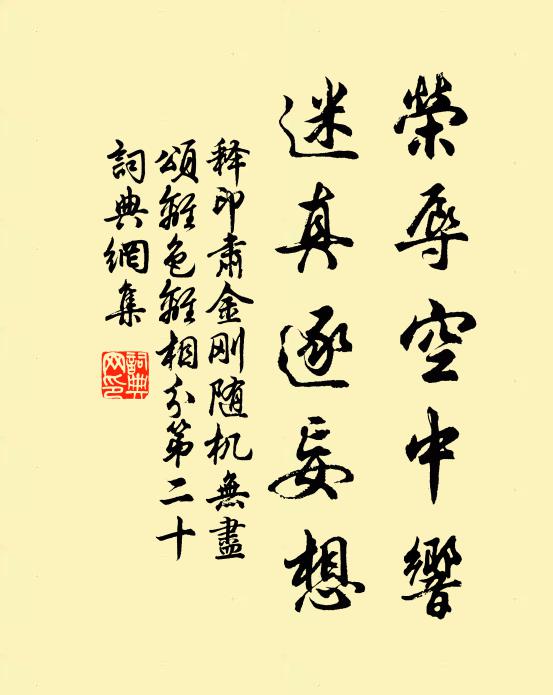 榮辱空中響
迷真逐妄想
释印肅金刚随机無盡
頌離色離相分第二十
詞典網集
詞典網印